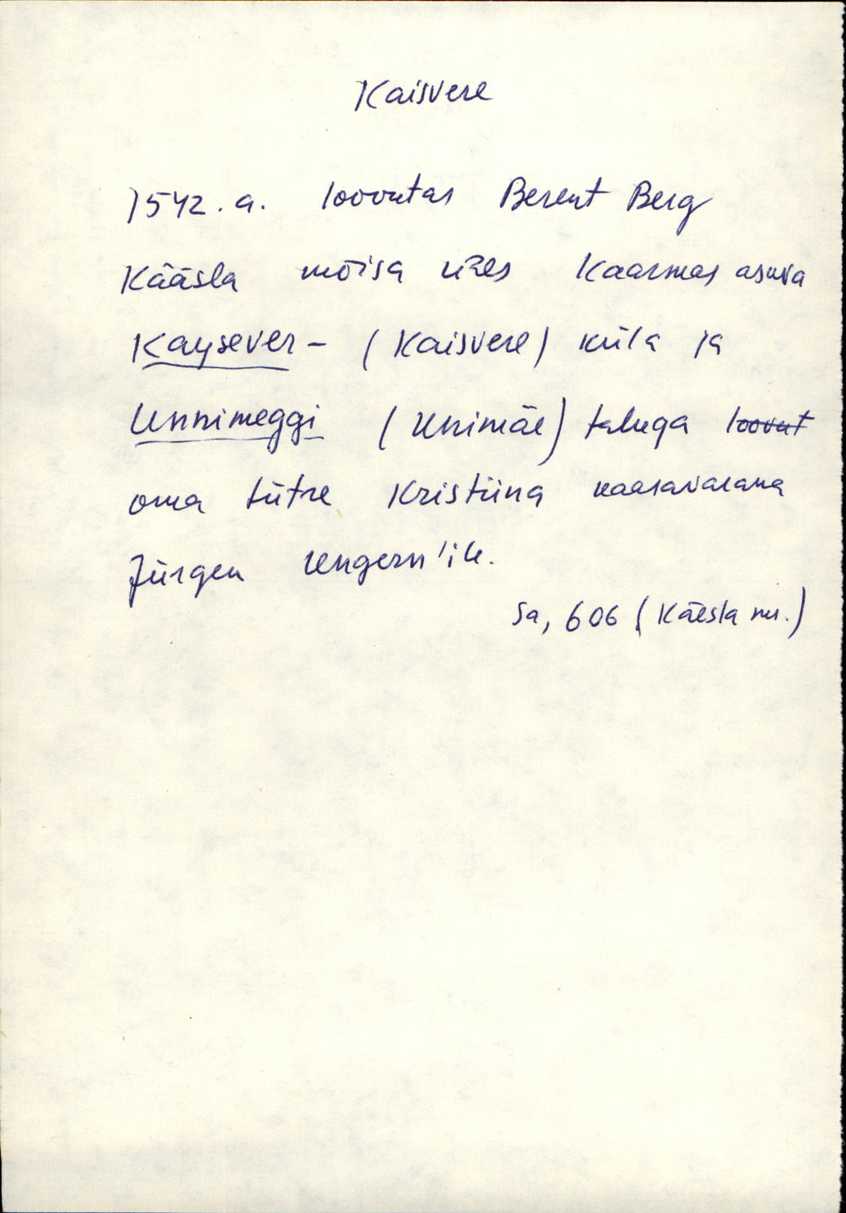 Kaisvere
1542.a. loovutas Berent Berg
Kääsla mõisa ühes Kaarmas asuva
Kaysever- (Kaisvere) küla ja
Unnimeggi (Unimäe) taluga loovut
oma tütre Kristiina kaasavarana
Jürgen Ungern'ile.
Sa, 606 (Käesla ms.)